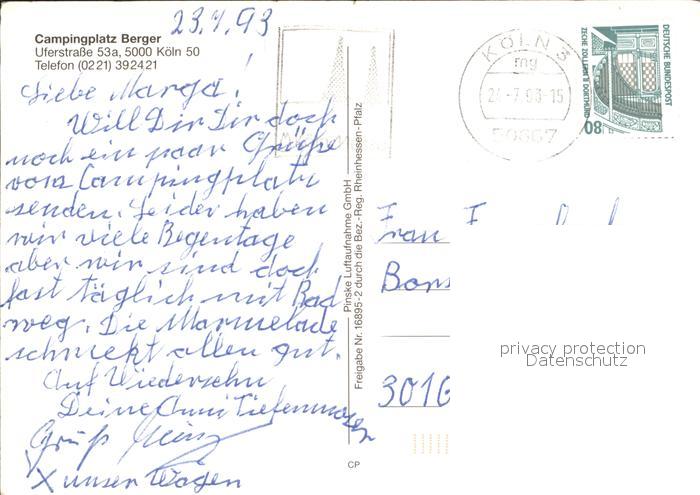 23.7.93
Campingplatz Berger
Uferstraße 53a, 5000 Köln 50
Telefon (0221) 392421
Liebe Marga!
Will Dir Dir doch
noch ein paar Grüße
vom Campingplatz
senden. Leider haben
wir viele Regentage
aber wir sind doch
fast täglich mit Rad
weg. Die Marmelade
schmeckt allen gut.
Auf Wiedersehn
Deine Anni
Gruß Heinz
X unser Wagen
Pinske Luftaufnahme GmbH
Freigabe Nr. 16895-2 durch die Bez.-Reg. Rheinhessen-Pfalz
CP
KÖLN 3
mg
24.-7.93-15
50667
DEUTSCHE BUNDESPOST
ZECHE ZOLLERN II DORTMUND
80
Frau
Bons
3016
privacy protection
Datenschutz